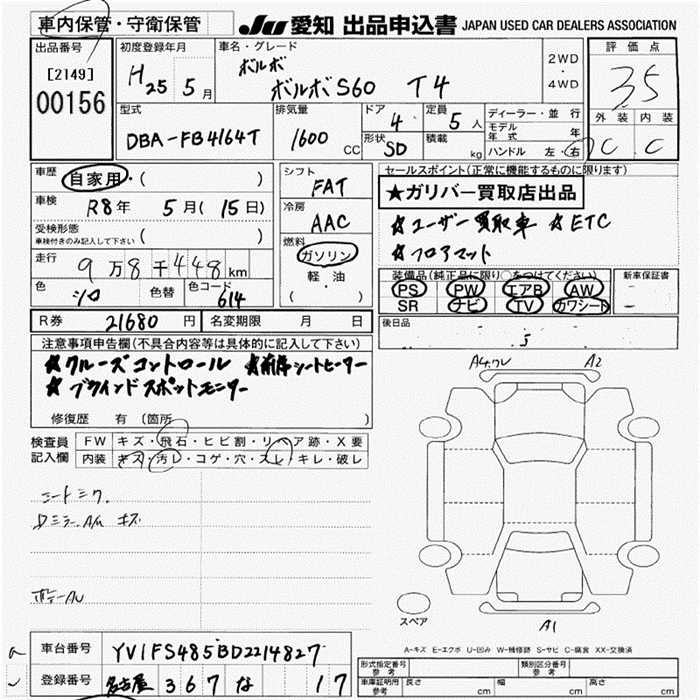 車内保管・守衛保管
JU 愛知 出品申込書 JAPAN USED CAR DEALERS ASSOCIATION
出品番号 初度登録年月 車名・グレード 評価点
[2149] 00156
H25 5月
ボルボ
ボルボS60 T4
2WD・4WD
3.5
型式 排気量 ドア 定員 ディーラー・並行 外装 内装
DBA-FB4164T 1600CC 4 5人
モデル年式 年
形状 SD 積載 kg ハンドル 左・右 C C
車歴 自家用・( ) シフト FAT
セールスポイント(正常に機能するものに限ります)
★ガリバー買取店出品
車検 R8年 5月(15日) 冷房 AAC
★ユーザー買取車 ★ETC
★フロアマット
受検形態 車検付きのみ記入して下さい ( )
燃料 ガソリン 軽・油 ( )
走行 9万8千448km
装備品(純正品に限り○をつけてください) 新車保証書
PS PW エアB AW
SR ナビ TV カワシート
色 シロ 色替 色コード 614
後日品
R券 21680円 名変期限 月 日
注意事項申告欄(不具合内容等は具体的に記入して下さい)
★クルーズコントロール ★前席シートヒーター
★ブラインドスポットモニター
修復歴 有 (箇所 )
A2
検査員記入欄 FW キズ・飛石・ヒビ割・リペア跡・X要
内装 キズ・汚レ・コゲ・穴・スレ・キレ・破レ
Dミラー
キズ
スペア
A1
A-キズ E-エクボ U-凹み W-補修跡 S-サビ C-腐食 XX-交換済
車台番号 YV1FS485BD2214827
登録番号 名古屋 367 な 17
形式指定番号 参考 類別区分番号 参考
車庫証明用 参考 長さ cm 幅 cm 高さ cm